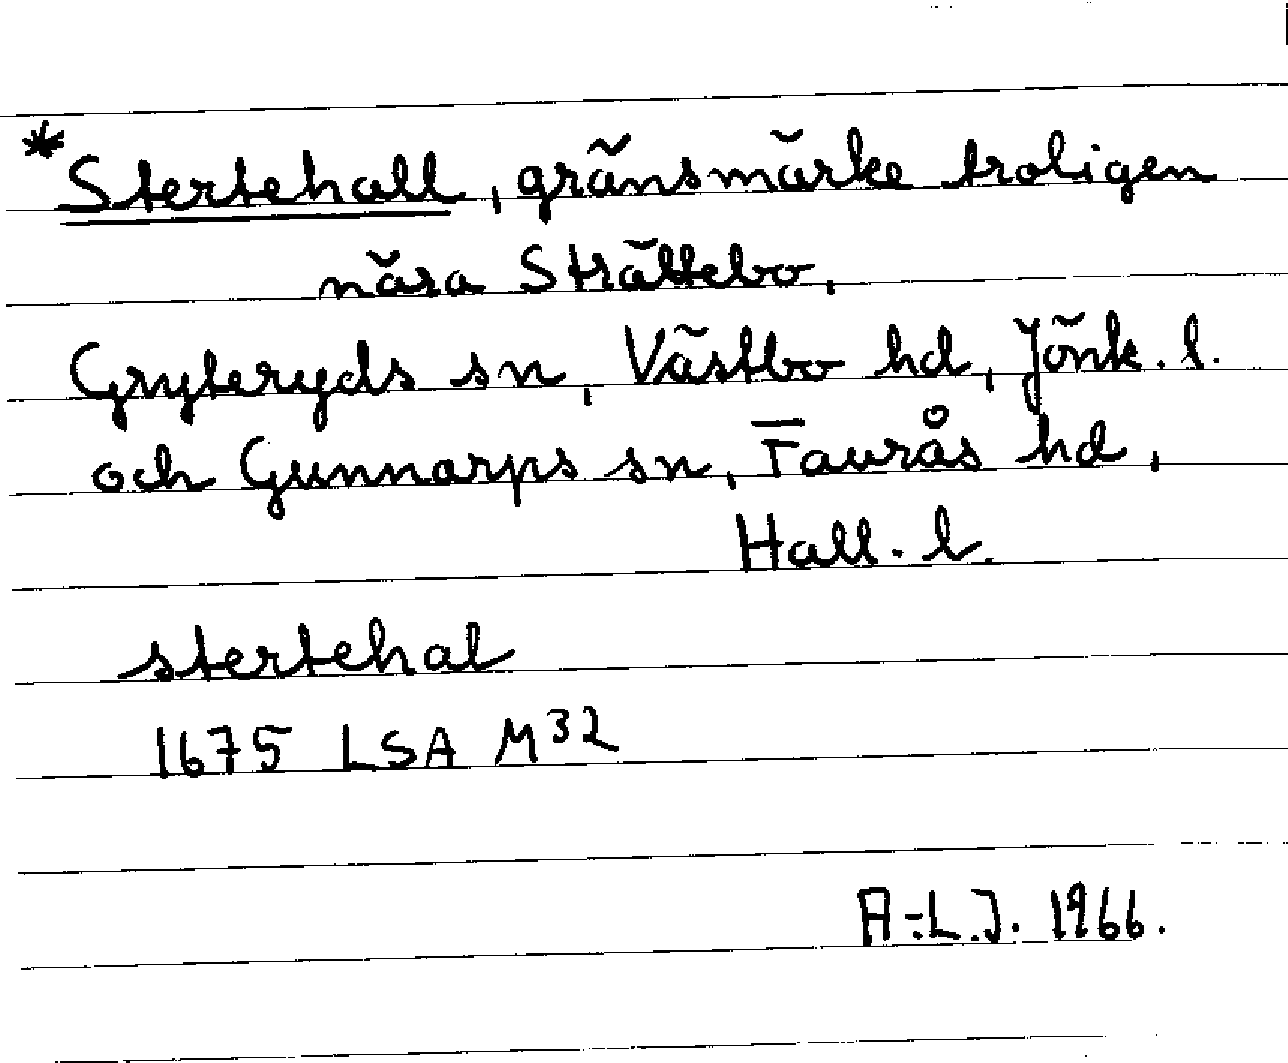 *Stertehall, gränsmärke troligen
nära Strättebo,
Gryteryds sn, Västbo hd, Jönk. l.
och Gunnarps sn, Faurås hd,
Hall. l.
stertehal
1675 LSA M32
A-L.J. 1966.